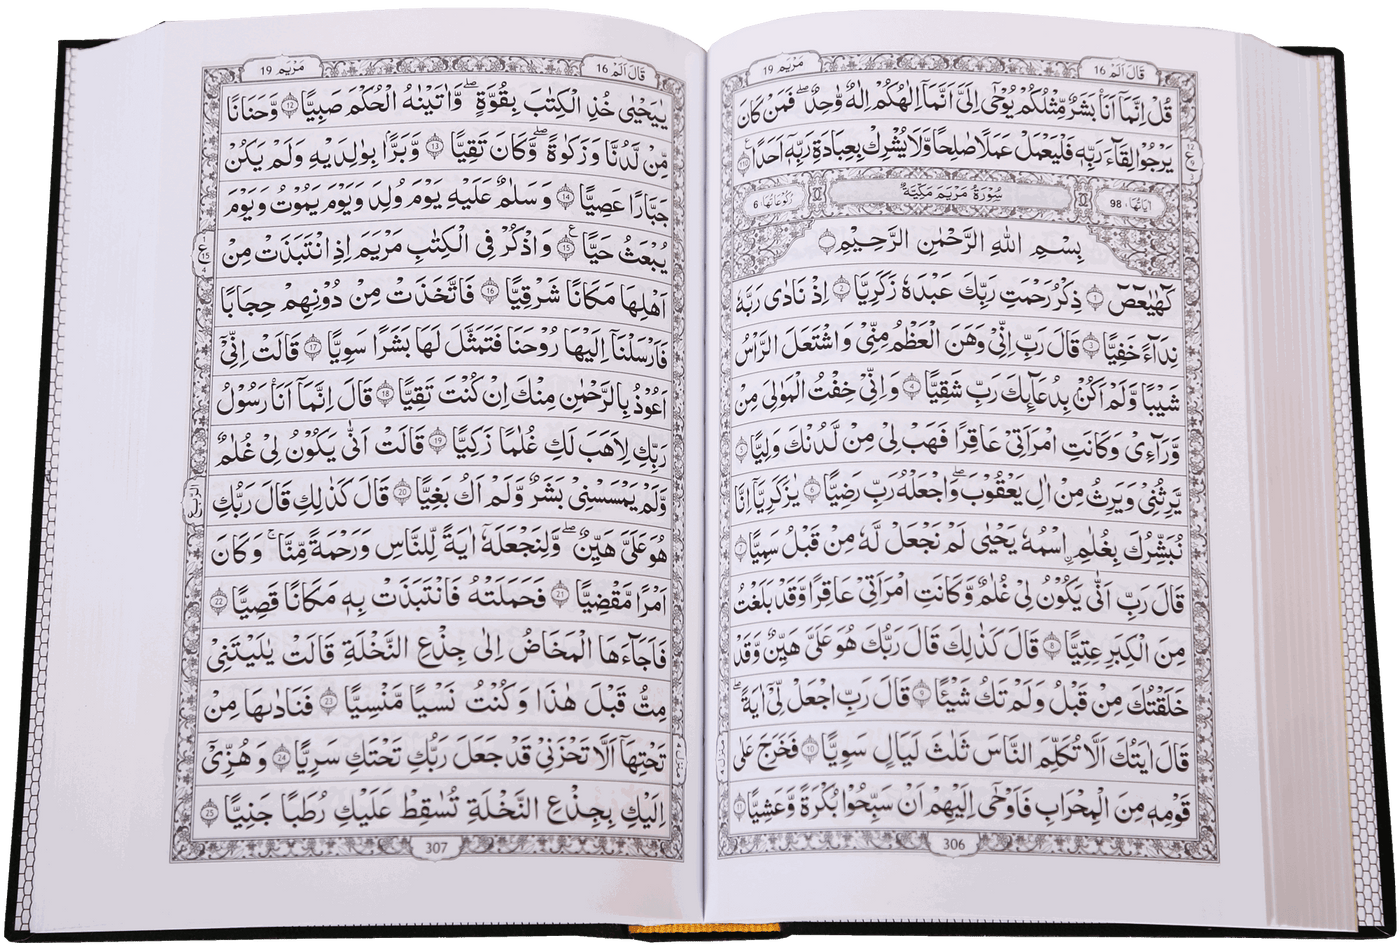 قَالَ اَلَمْ 16
مَرْيَم 19
قُلْ اِنَّمَآ اَنَا۠ بَشَرٌ مِّثْلُكُمْ يُوْحٰۤى اِلَيَّ اَنَّمَآ اِلٰهُكُمْ اِلٰهٌ وَّاحِدٌ ۖ فَمَنْ كَانَ
يَرْجُوْا لِقَآءَ رَبِّهٖ فَلْيَعْمَلْ عَمَلًا صَالِحًا وَّلَا يُشْرِكْ بِعِبَادَةِ رَبِّهٖٓ اَحَدًا ۧ 110
اٰيَاتُهَا، 98 سُوْرَةُ مَرْيَمَ مَكِّيَّةٌ رُكُوْعَاتُهَا 6
بِسْمِ اللّٰهِ الرَّحْمٰنِ الرَّحِيْمِ
كٓهٰيٰعٓصٓ 1 ذِكْرُ رَحْمَتِ رَبِّكَ عَبْدَهٗ زَكَرِيَّا 2 اِذْ نَادٰى رَبَّهٗ
نِدَآءً خَفِيًّا 3 قَالَ رَبِّ اِنِّيْ وَهَنَ الْعَظْمُ مِنِّيْ وَاشْتَعَلَ الرَّاْسُ
شَيْبًا وَّلَمْ اَكُنْۢ بِدُعَآئِكَ رَبِّ شَقِيًّا 4 وَاِنِّيْ خِفْتُ الْمَوَالِيَ مِنْ
وَّرَآءِيْ وَكَانَتِ امْرَاَتِيْ عَاقِرًا فَهَبْ لِيْ مِنْ لَّدُنْكَ وَلِيًّا 5
يَّرِثُنِيْ وَيَرِثُ مِنْ اٰلِ يَعْقُوْبَ ۖ وَاجْعَلْهُ رَبِّ رَضِيًّا 6 يٰزَكَرِيَّآ اِنَّا
نُبَشِّرُكَ بِغُلٰمِ ِۨاسْمُهٗ يَحْيٰى لَمْ نَجْعَلْ لَّهٗ مِنْ قَبْلُ سَمِيًّا 7
قَالَ رَبِّ اَنّٰى يَكُوْنُ لِيْ غُلٰمٌ وَّكَانَتِ امْرَاَتِيْ عَاقِرًا وَّقَدْ بَلَغْتُ
مِنَ الْكِبَرِ عِتِيًّا 8 قَالَ كَذٰلِكَ قَالَ رَبُّكَ هُوَ عَلَيَّ هَيِّنٌ وَّقَدْ
خَلَقْتُكَ مِنْ قَبْلُ وَلَمْ تَكُ شَيْئًا 9 قَالَ رَبِّ اجْعَلْ لِّيْٓ اٰيَةً ۖ
قَالَ اٰيَتُكَ اَلَّا تُكَلِّمَ النَّاسَ ثَلٰثَ لَيَالٍ سَوِيًّا 10 فَخَرَجَ عَلٰى
قَوْمِهٖ مِنَ الْمِحْرَابِ فَاَوْحٰۤى اِلَيْهِمْ اَنْ سَبِّحُوْا بُكْرَةً وَّعَشِيًّا 11
306
قَالَ اَلَمْ 16
مَرْيَم 19
يٰيَحْيٰى خُذِ الْكِتٰبَ بِقُوَّةٍ ۖ وَاٰتَيْنٰهُ الْحُكْمَ صَبِيًّا 12 وَّحَنَانًا
مِّنْ لَّدُنَّا وَزَكٰوةً ۖ وَكَانَ تَقِيًّا 13 وَّبَرًّۢا بِوَالِدَيْهِ وَلَمْ يَكُنْ
جَبَّارًا عَصِيًّا 14 وَسَلٰمٌ عَلَيْهِ يَوْمَ وُلِدَ وَيَوْمَ يَمُوْتُ وَيَوْمَ
يُبْعَثُ حَيًّا ۧ 15 وَاذْكُرْ فِي الْكِتٰبِ مَرْيَمَ اِذِ انْتَبَذَتْ مِنْ
اَهْلِهَا مَكَانًا شَرْقِيًّا 16 فَاتَّخَذَتْ مِنْ دُوْنِهِمْ حِجَابًا
فَاَرْسَلْنَآ اِلَيْهَا رُوْحَنَا فَتَمَثَّلَ لَهَا بَشَرًا سَوِيًّا 17 قَالَتْ اِنِّيْٓ
اَعُوْذُ بِالرَّحْمٰنِ مِنْكَ اِنْ كُنْتَ تَقِيًّا 18 قَالَ اِنَّمَآ اَنَا۠ رَسُوْلُ
رَبِّكِ لِاَهَبَ لَكِ غُلٰمًا زَكِيًّا 19 قَالَتْ اَنّٰى يَكُوْنُ لِيْ غُلٰمٌ
وَّلَمْ يَمْسَسْنِيْ بَشَرٌ وَّلَمْ اَكُ بَغِيًّا 20 قَالَ كَذٰلِكِ قَالَ رَبُّكِ
هُوَ عَلَيَّ هَيِّنٌ ۖ وَلِنَجْعَلَهٗٓ اٰيَةً لِّلنَّاسِ وَرَحْمَةً مِّنَّا ۚ وَكَانَ
اَمْرًا مَّقْضِيًّا 21 فَحَمَلَتْهُ فَانْتَبَذَتْ بِهٖ مَكَانًا قَصِيًّا 22
فَاَجَآءَهَا الْمَخَاضُ اِلٰى جِذْعِ النَّخْلَةِ قَالَتْ يٰلَيْتَنِيْ
مِتُّ قَبْلَ هٰذَا وَكُنْتُ نَسْيًا مَّنْسِيًّا 23 فَنَادٰىهَا مِنْ
تَحْتِهَآ اَلَّا تَحْزَنِيْ قَدْ جَعَلَ رَبُّكِ تَحْتَكِ سَرِيًّا 24 وَهُزِّيْٓ
اِلَيْكِ بِجِذْعِ النَّخْلَةِ تُسٰقِطْ عَلَيْكِ رُطَبًا جَنِيًّا 25
307